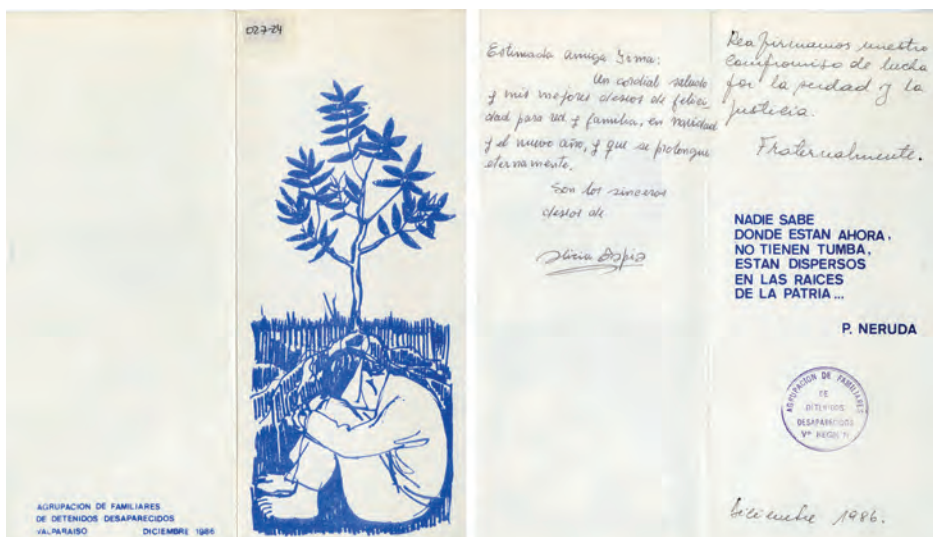 D27-24
AGRUPACION DE FAMILIARES
DE DETENIDOS DESAPARECIDOS
VALPARAISO DICIEMBRE 1986
Estimada amiga Irma:
Un cordial saludo
y mis mejores deseos de felici-
dad para ud. y familia, en navidad
y el nuevo año, y que se prolongue
eternamente.
Son los sinceros
deseos de
Reafirmamos nuestro
Compromiso de lucha
por la verdad y la
justicia.
Fraternalmente.
NADIE SABE
DONDE ESTAN AHORA,
NO TIENEN TUMBA,
ESTAN DISPERSOS
EN LAS RAICES
DE LA PATRIA...
P. NERUDA
AGRUPACION DE FAMILIARES
DE
DETENIDOS
DESAPARECIDOS
Vª REGION
Diciembre 1986.